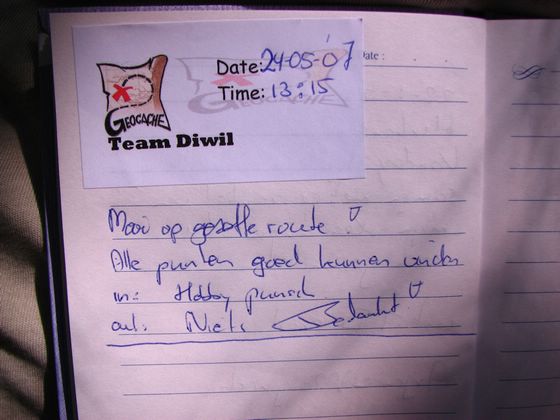 Date: 24-05-'07
Time: 13:15
GEOCACHE
Team Diwil
Date :
Mooi op gezette route!
Alle punten goed kunnen vinden
in: Hobby
out: Niets Bedankt!